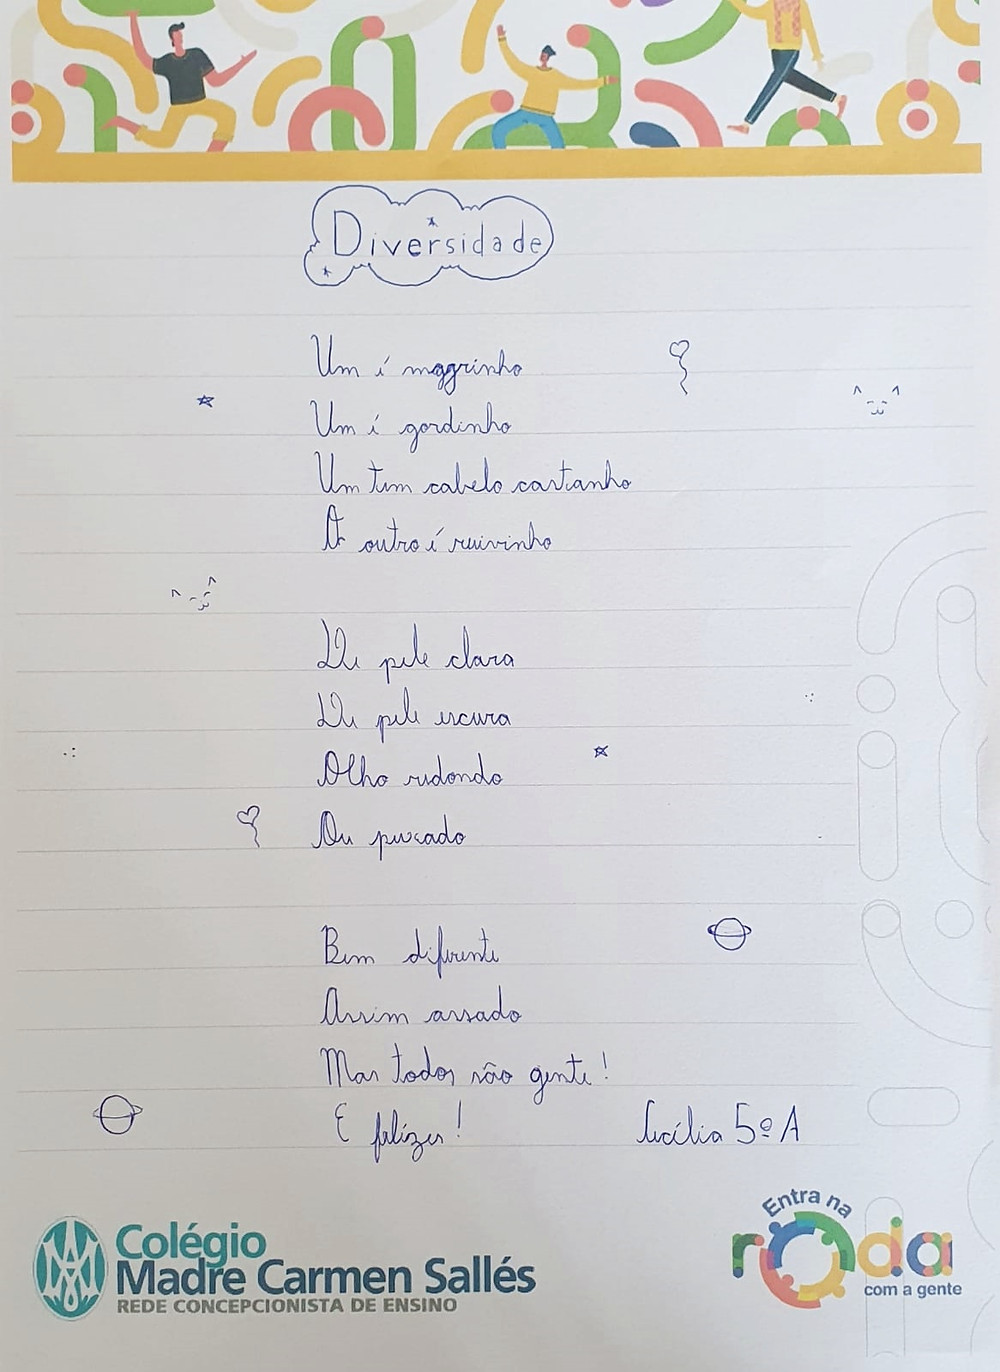 Diversidade
Um é magrinho
Um é gordinho
Um tem cabelo castanho
O outro é ruivinho
De pele clara
De pele escura
Olho redondo
Ou puxado
Bem diferente
Assim assado
Mas todos são gente!
E felizes!
Cecília 5º A
Colégio
Madre Carmen Sallés
REDE CONCEPCIONISTA DE ENSINO
Entra na
roda
com a gente